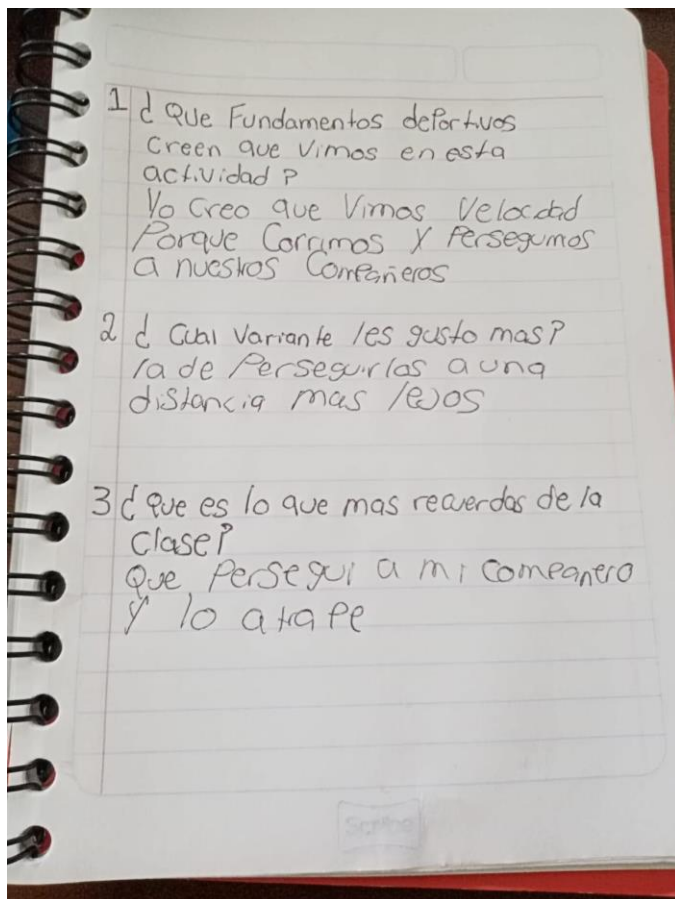 1 ¿ Que Fundamentos deportivos
creen que vimos en esta
actividad ?
Yo creo que Vimos Velocdad
Porque Corrimos y Persegumos
a nuestros Compañeros
2 ¿ Cual Variante les gusto mas?
la de Perseguirlas a una
distancia mas lejos
3 ¿ Que es lo que mas recuerdas de la
clase?
Que Persegui a mi compañero
y lo atrape
Scribe